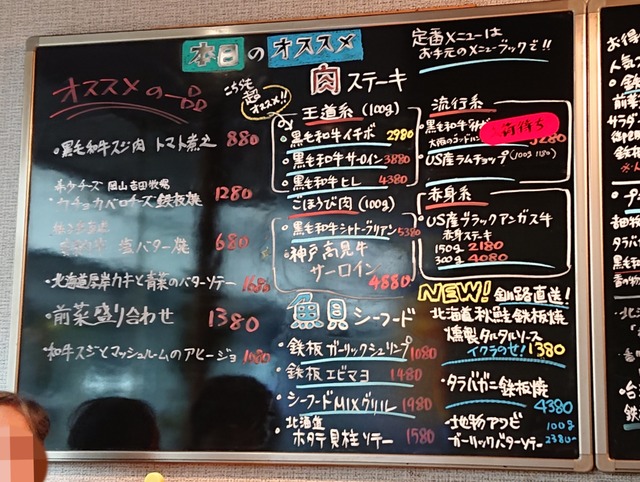 本日のオススメ
定番メニューは
お手元のメニューブックで!!
オススメの一品
こちらも
超
オススメ!!
肉ステーキ
・黒毛和牛スジ肉 トマト煮込 880
希少チーズ 岡山吉田牧場
・カチョカバロチーズ鉄板焼 1280
塩バター焼 680
・北海道厚岸カキと青菜のバターソテー
・前菜盛り合わせ 1380
・和牛スジとマッシュルームのアヒージョ 1080
王道系 (100g)
・黒毛和牛イチボ 2980
・黒毛和牛サーロイン 3880
・黒毛和牛ヒレ 4380
ごほうび肉 (100g)
・黒毛和牛シャトーブリアン 5380
・神戸高見牛
サーロイン 4880
流行系
・黒毛和牛
入荷待ち
・US産ラムチョップ
赤身系
・US産ブラックアンガス牛
赤身ステーキ
150g 2180
300g 4080
魚貝シーフード
・鉄板ガーリックシュリンプ 1080
・鉄板エビマヨ 1480
・シーフードMIXグリル 1980
・北海道
ホタテ貝柱ソテー 1580
NEW! 釧路直送!
北海道秋鮭鉄板焼
燻製タルタルソース
イクラのせ! 1380
・タラバガニ鉄板焼
4380
・地物アワビ 100g
ガーリックバターソテー 2380~